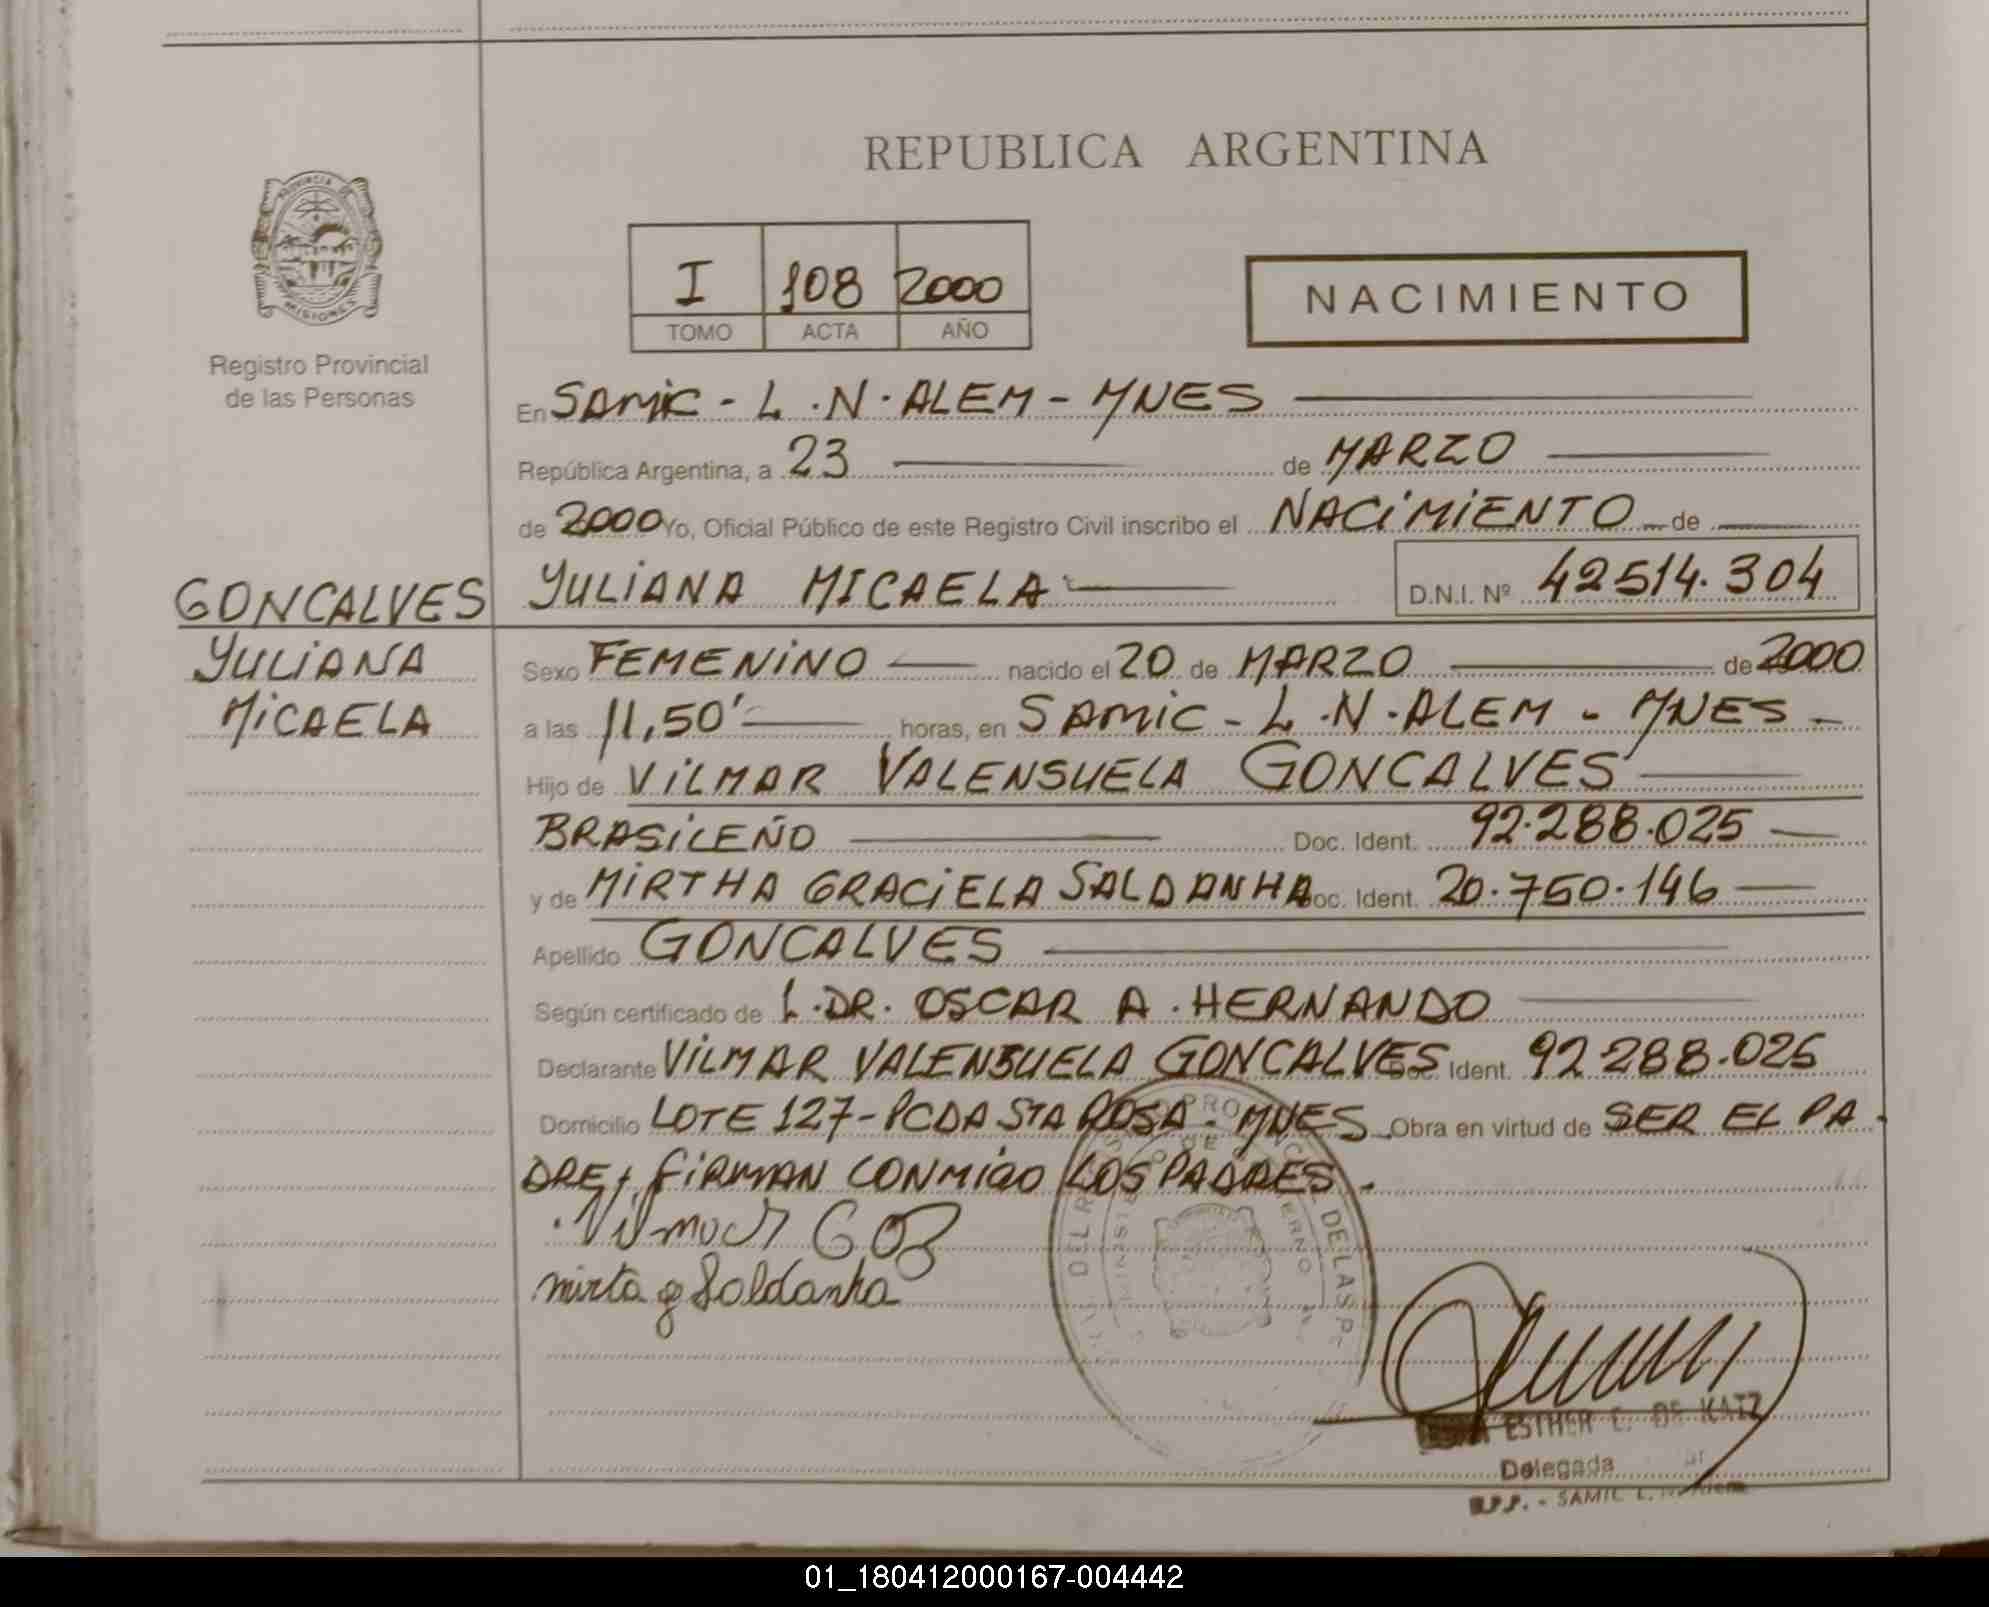 REPUBLICA ARGENTINA
PROVINCIA DE
MISIONES
Registro Provincial
de las Personas
I 108 2000
TOMO ACTA AÑO
NACIMIENTO
En SAMIC - L.N. ALEM - MNES
República Argentina, a 23 de MARZO
de 2000 Yo, Oficial Público de este Registro Civil inscribo el NACIMIENTO de
GONCALVES
YULIANA
MICAELA
YULIANA MICAELA D.N.I. Nº 42514.304
Sexo FEMENINO nacido el 20 de MARZO de 2000
a las 11,50' horas, en SAMIC - L.N. ALEM - MNES -
Hijo de VILMAR VALENSUELA GONCALVES
BRASILEÑO Doc. Ident. 92.288.025
y de MIRTHA GRACIELA SALDANHA Doc. Ident. 20.750.146
Apellido GONCALVES
Según certificado de L. DR. OSCAR A. HERNANDO
Declarante VILMAR VALENSUELA GONCALVES Doc. Ident. 92 288.025
Domicilio LOTE 127 - PCDA STA ROSA - MNES Obra en virtud de SER EL PA-
DRE, FIRMAN CONMIGO LOS PADRES.
mirta g Saldanha
ESTHER DE KATZ
Delegada
R.P.P. - SAMIC L. N. Alem
01_180412000167-004442